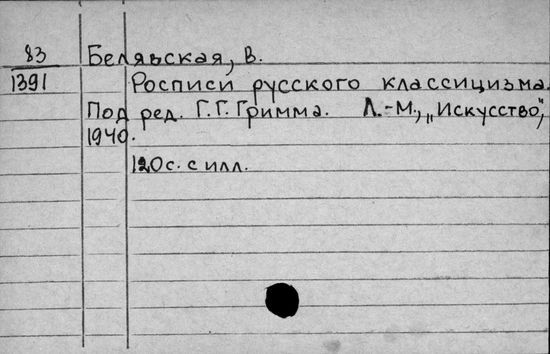 83 Белявская, В.
1391 Росписи русского классицизма.
Под ред. Г.Г. Гримма. Л.-М., „Искусство",
1940.
120с. с илл.